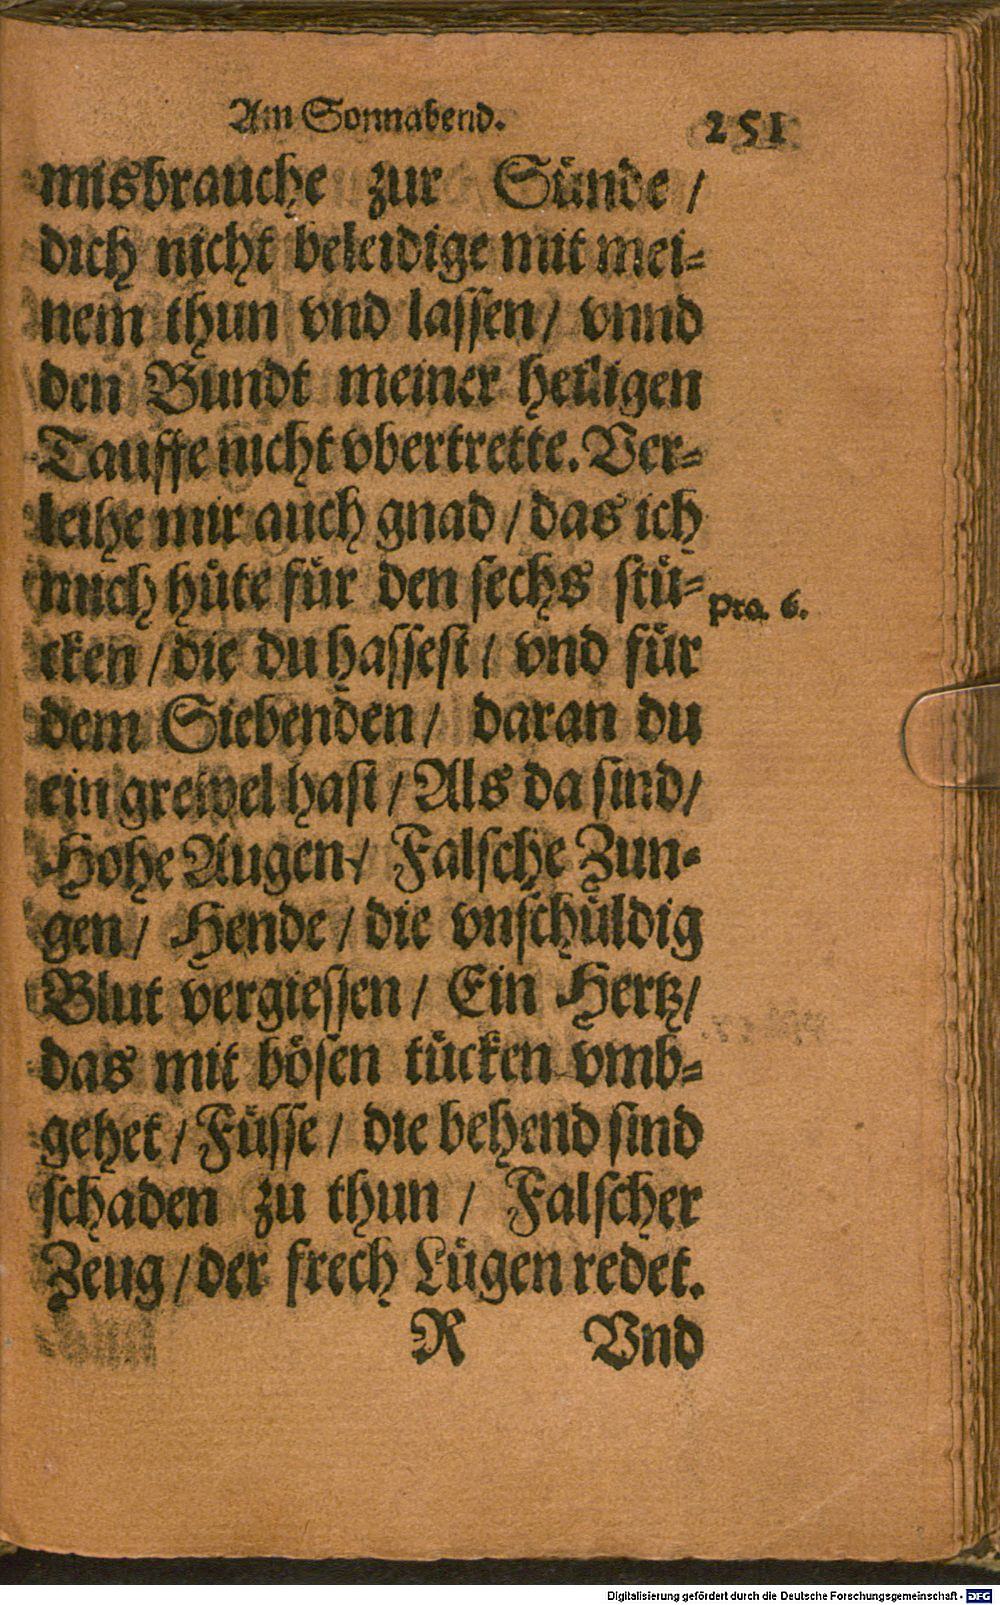 Am Sonnabend. 251
misbrauche zur Sünde /
dich nicht beleidige mit mei=
nem thun vnd lassen / vnnd
den Bundt meiner heiligen
Tauffe nicht vbertrette. Ver=
leihe mir auch gnad / das ich
mich hüte für den sechs stü=
cken / die du hassest / vnd für
Pro. 6.
dem Siebenden / daran du
ein grewel hast / Als da sind /
Hohe Augen / Falsche Zun=
gen / Hende / die vnschüldig
Blut vergiessen / Ein Hertz /
das mit bösen tücken vmb=
gehet / Füsse / die behend sind
schaden zu thun / Falscher
Zeug / der frech Lügen redet.
R Vnd
Digitalisierung gefördert durch die Deutsche Forschungsgemeinschaft - DFG